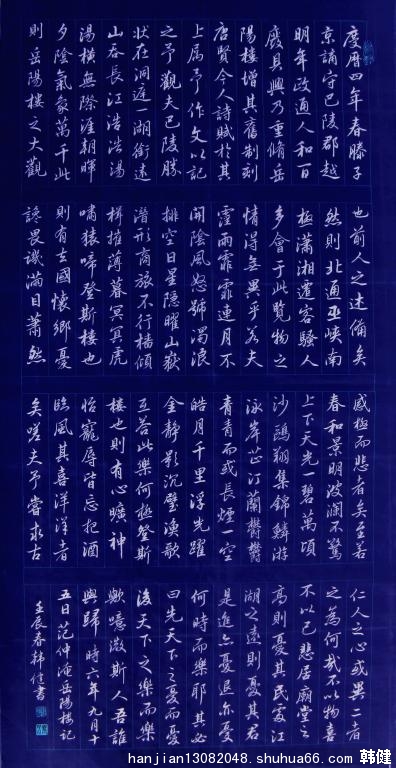 慶曆四年春滕子
京謫守巴陵郡越
明年政通人和百
廢具興乃重脩岳
陽樓增其舊制刻
唐賢今人詩賦於其
上屬予作文以記
之予觀夫巴陵勝
狀在洞庭一湖銜遠
山吞長江浩浩湯
湯橫無際涯朝暉
夕陰氣象萬千此
則岳陽樓之大觀
也前人之述備矣
然則北通巫峽南
極瀟湘遷客騷人
多會于此覽物之
情得無異乎若夫
霪雨霏霏連月不
開陰風怒號濁浪
排空日星隱曜山嶽
潛形商旅不行檣傾
楫摧薄暮冥冥虎
嘯猿啼登斯樓也
則有去國懷鄉憂
讒畏譏滿目蕭然
感極而悲者矣至若
春和景明波瀾不驚
上下天光一碧萬頃
沙鷗翔集錦鱗游
泳岸芷汀蘭鬱鬱
青青而或長煙一空
皓月千里浮光躍
金靜影沉璧漁歌
互答此樂何極登斯
樓也則有心曠神
怡寵辱皆忘把酒
臨風其喜洋洋者
矣嗟夫予嘗求古
仁人之心或異二者
之為何哉不以物喜
不以己悲居廟堂之
高則憂其民處江
湖之遠則憂其君
是進亦憂退亦憂
何時而樂耶其必
曰先天下之憂而憂
後天下之樂而樂
歟噫微斯人吾誰
與歸時六年九月十
五日范仲淹岳陽樓記
壬辰春韓健書
hanjian13082048.shuhua66.com 韩健